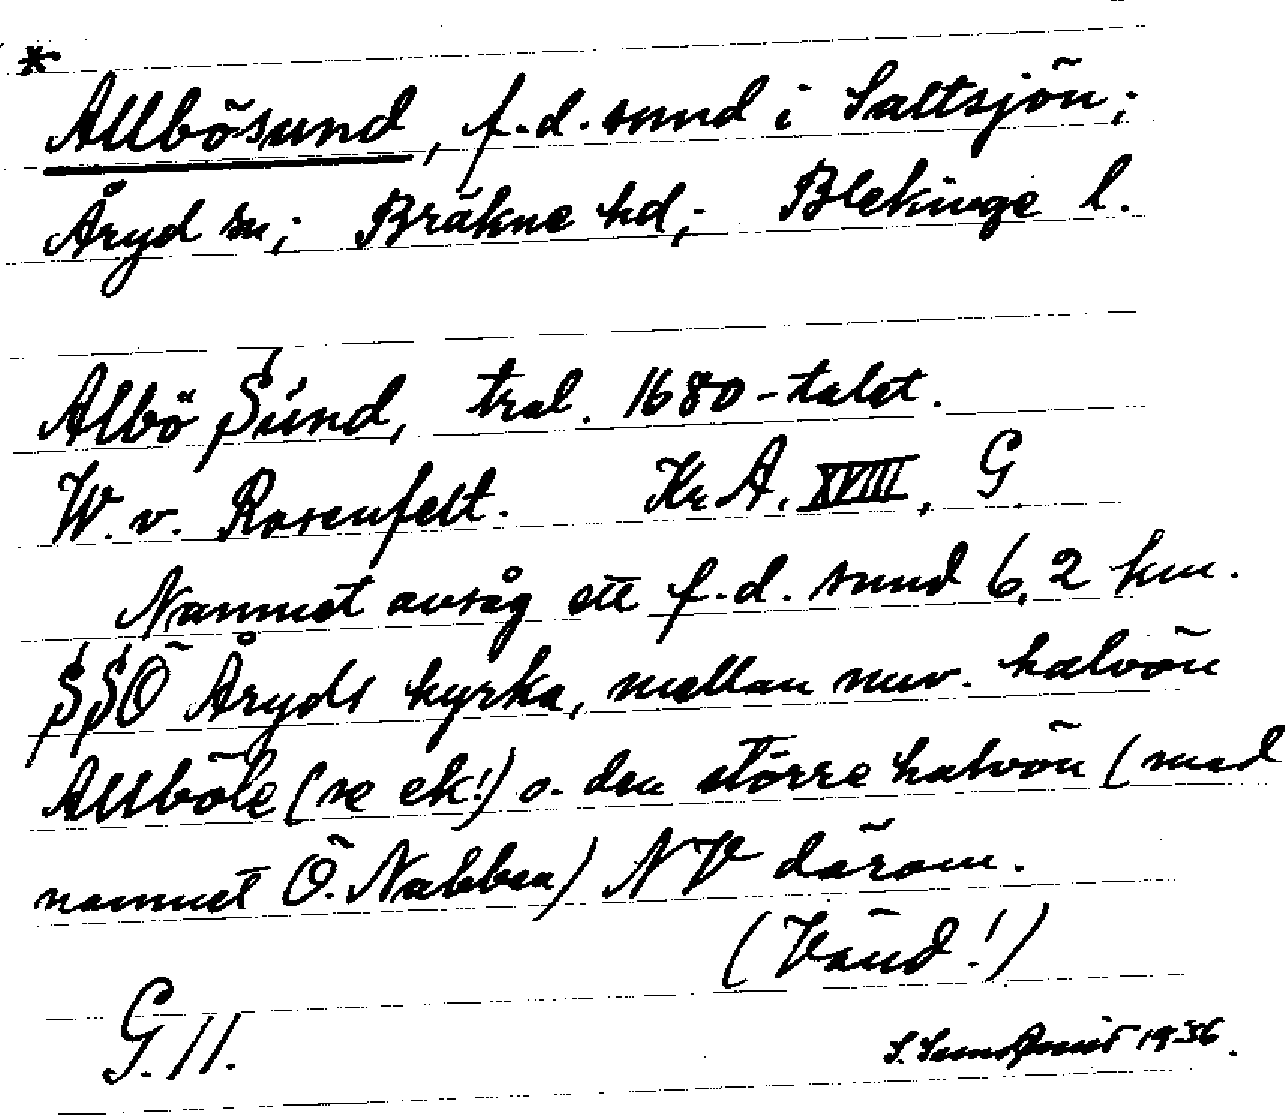 *
Allbösund, f.d. sund i Saltsjön;
Åryd sn; Bräkne hd; Blekinge l.
Albö Sund, tral. 1680-talet.
W. v. Rosenfelt. Kr.A. XVIII, G
Namnet avsåg ett f.d. sund 6,2 km.
SSÖ Åryds kyrka, mellan nuv. halvön
Allböle (se ek!) o. den större halvön (med
namnet Ö. Nabben) NV därom.
(Vänd!)
G.11.
S. 1936.